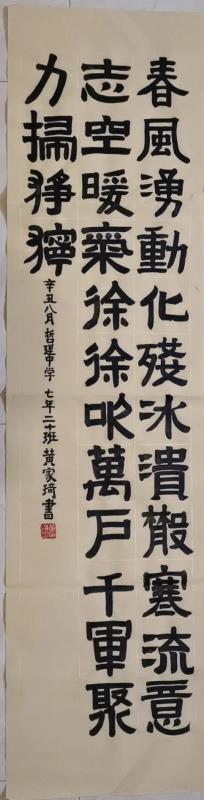 春風湧動化殘冰潰散寒流意
志空暖氣徐徐吹萬戶千軍聚
力掃猙獰
辛丑八月 哲理中学 七年二十班 黄家琦書